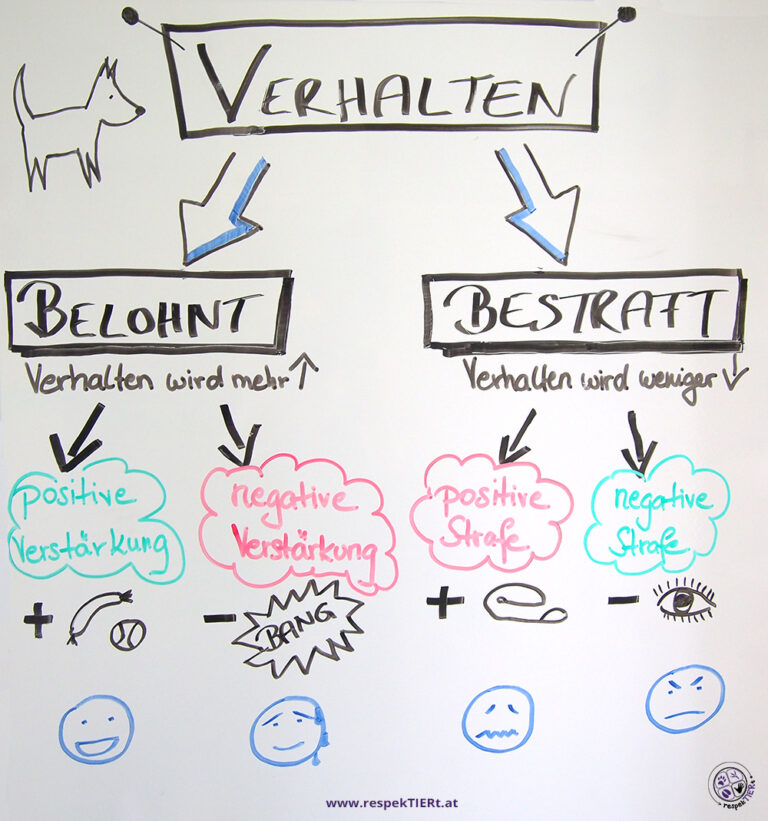 VERHALTEN
BELOHNT
Verhalten wird mehr ↑
BESTRAFT
Verhalten wird weniger ↓
positive
Verstärkung
negative
Verstärkung
positive
Strafe
negative
Strafe
+
- BANG
+
-
www.respekTIERt.at
respekTIERt